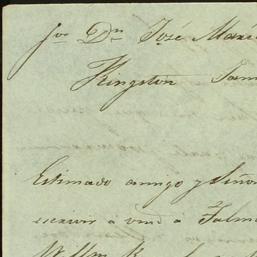 Sor Dn José Marí
Kingston Jam
Estimado amigo y Señor
escrivir á vmd á Falmo